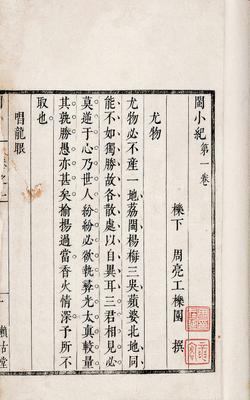 閩小紀第一卷
櫟下 周亮工櫟園 撰
尤物
尤物必不產一地荔閩楊梅三吳蘋婆北地同
能不如獨勝故各散處以自異耳三君相見必
莫逆于心乃世人紛紛必欲執
其孰勝愚亦甚矣揄揚過當香火情深予所不
取也
唱龍眼
賴古堂